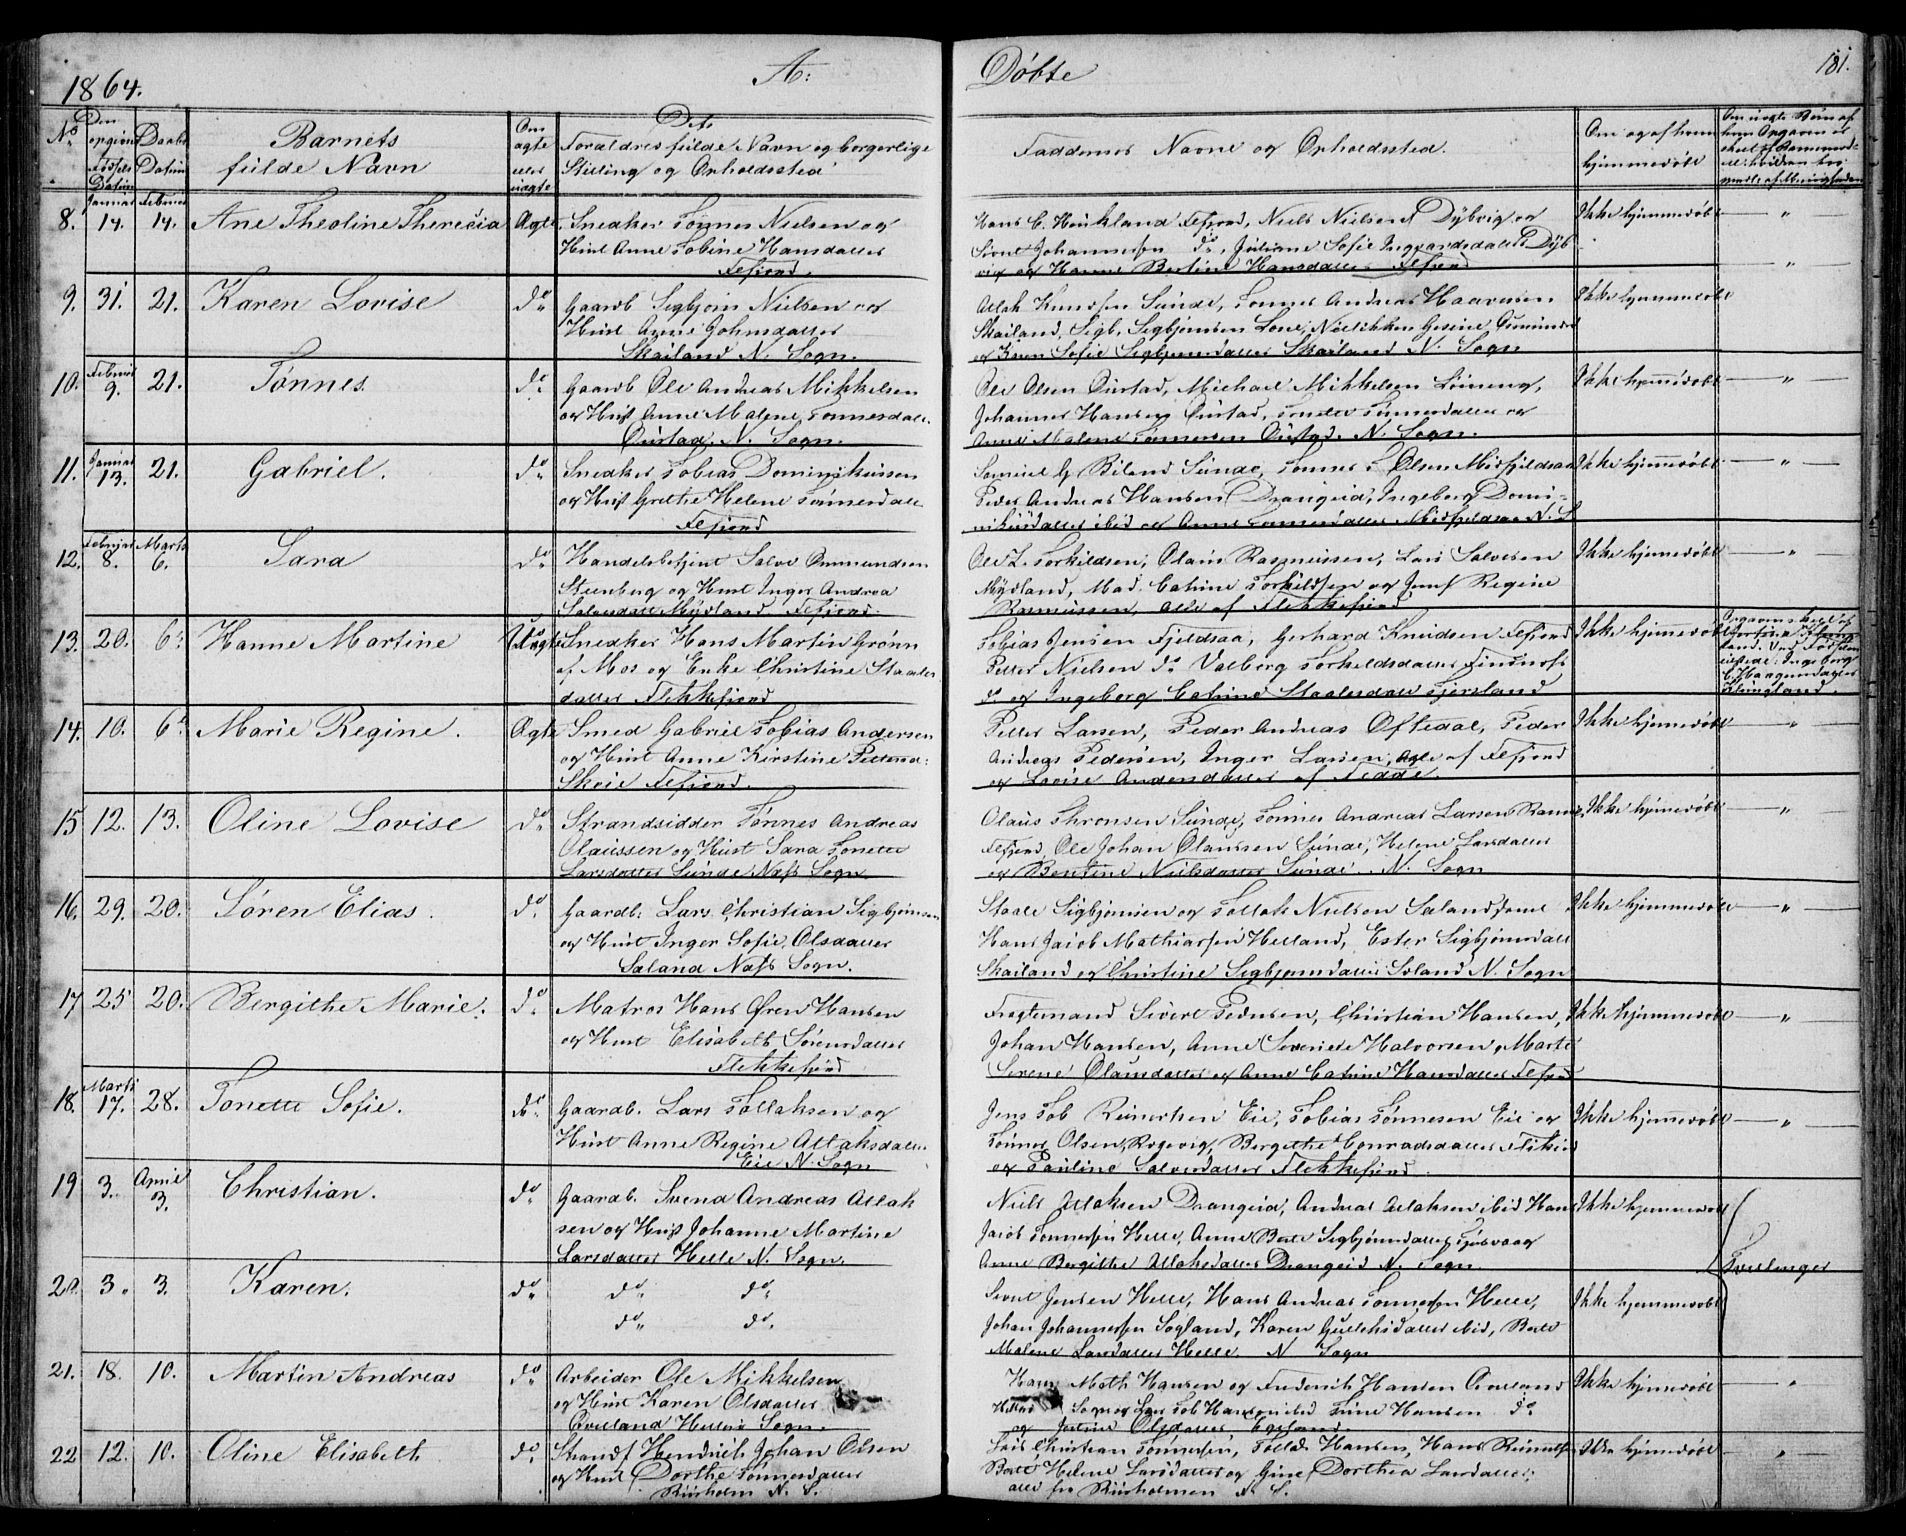 1864. A: Døbte 181.
No Den opgivne Fødsels Datum Daabs Datum Barnets fulde Navn Om ægte eller uægte Dets Forældres fulde Navn og borgerlige Stilling og Opholdssted Faddernes Navne og Opholdssted. Om og af hvem hjemmedøbt
8. Januar 14. Februar 14. Ane Theoline Theresia Ægte Snedker Tønnes Nielsen og
Hust Anne Tobine Hansdatter
Flefjord.
Hans C. Heukland Flefjord, Niels Nielsen Dybvig og
Sivert Johannessen do, Juliane Sofie Ingvardsdatter Dyb
vig og Hanne Bertine Hansdatter Flefjord
Ikke hjemmedøbt — " —
9. 31. 21. Karen Lovise do Gaardb Sigbjørn Nielsen og
Hust Anne Johnsdatter
Skailand N. Sogn.
Atlak Knudsen Sunde, Tønnes Andreas Haaversen
Skailand, Sigb. Sigbjønsen Lone, Nielikken Gesine Gumunds
og Karen Sofie Sigbjørnsdatter Skailand N. Sogn
Ikke hjemmedøbt "
10. Februar 9. 21. Tønnes do Gaardb Ole Andreas Mikkelsen
og Hust Anne Malene Tønnesdatt.
Øustad. N. Sogn.
Ole Olsen Øustad, Michael Mikkelsen Løining,
Johannes Hansen Øustad, Tonette Tønnesdatter og
Anne Malene Tønnesen Øustad. N. Sogn.
Ikke hjemmedøbt — " —
11. Januar 13. 21. Gabriel. do Snedker Tobias Dominikussen
og Hust Grethe Helene Tønnesdatt
Flefjord
Samuel G Biland Sunde, Tønnes T Olsen Midfjeldsaa
Peder Andreas Hansen Drangeid, Ingeborg Domi-
nikusdatter ibid og Anne Tønnesdatter Midfjeldsaa N. S
Ikke hjemmedøbt — " —
12. Februar 8. Marts 6. Sara do Handelsbetjent Salve Ommundsen
Steenberg og Hust Inger Andrea
Salvesdatt Mydland Flefjord.
Ole T. Torkildsen, Olaus Rasmussen, Lars Salvesen
Mydland, Mad. Catrine Torkildsen og Jomf Regine
Rasmussen, alle af Flekkefjord
Ikke hjemmedøbt — " —
13. 20. 6. Hanne Martine Uægte Snedker Hans Martin Grønn
af Mos og Enke Christine Staales
datter Flekkefjord
Tobias Jensen Fjeldsaa, Gerhard Knudsen Flefjord
Petter Nielsen do Valborg Torkildsdatter
do og Ingeborg Catrine Staalesdatt Gjersland
Ikke hjemmedøbt
14. 10. 6. Marie Regine. Ægte Smed Gabriel Tobias Andersen
og Hust Anne Kirstine Petters:
Skoie Flefjord.
Petter Larsen, Peder Andreas Oftedal, Peder
Andreas Pedersen, Inger Larsen, alle af Flefjord
og Lovise Andersdatter af Fedde
Ikke hjemmedøbt — " —
15 12. 13. Oline Lovise do Strandsidder Tønnes Andreas
Olaussen og Hust Sara Tonette
Larsdatter Sunde Næss Sogn
Olaus Thronsen Sunde, Tønnes Andreas Larsen
Flefjord, Ole Johan Olaussen Sunde, Helene Larsdatter
og Bentine Nielsdatter Sunde. N. Sogn
Ikke hjemmedøbt — " —
16. 29. 20. Søren Elias. do Gaardb: Lars Christian Sigbjønsen
og Hust Inger Sofie Olsdatter
Saland Næss Sogn.
Staale Sigbjønsen og Tollak Nielsen Saland
Hans Jacob Mathiassen Helland, Ester Sigbjønsdatt
Skailand og Christine Sigbjønsdatter Soland N. Sogn
Ikke hjemmedøbt — " —
17 25 20. Bergithe Marie. do Matros Hans Ørens Hansen
og Hust Elisabeth Sørensdatter
Flekkefjord
Fragtemand Sivert Pedersen, Christian Hansen,
Johan Hansen, Anne Severine Halvorsen, Marte
Serene Olausdatter og Anne Catrine Hansdatter Flefjord
Ikke hjemmedøbt — " —
18. Marts 17. 28. Tonette Sofie. do Gaardb. Lars Tollaksen og
Hust Anne Regine Atlaksdatter
Eie N. Sogn
Jens Tob Reinertsen Eie, Tobias Tønnesen Eie og
Tønnes Olsen, Rogevig, Bergithe Conradsdatter
og Pauline Salvesdatter Flekkefjord.
Ikke hjemmedøbt — " —
19 3. April 3. Christian. do Gaardb. Svend Andreas Atlak
sen og Hust Johanne Martine
Larsdatter Helle N. Sogn.
Niels Atlaksen Drangeid, Andreas Atlaksen ibid Hans
Jacob Tønnessen Helle, Anne Berte Sigbjønsdatter
Anne Bergithe Atlaksdatter Drangeid N. Sogn
Ikke hjemmedøbt
Tvillinger
20. 3. 3. Karen. do do do
do do
Sivert Jensen Helle, Hans Andreas Tønnessen Helle,
Johan Johannessen Sogland, Karen Gullichsdatter ibid, Berte
Malene Larsdatter Helle. N Sogn
Ikke hjemmedøbt
21. 18. 10. Martin Andreas do Arbeider Ole Mikkelsen
og Hust Karen Olsdatter
Øveland Sogn.
Hans Math Hansen og Frederik Hansen
Sogn og Lars Tob Hansen ibid Tine Hansen do
og Olsdatter Egeland.
Ikke hjemmedøbt "
22 12. 10. Oline Elisabeth do Strandf Hendrik Johan Olsen
og Hust Dorthe Tønnesdatter
Risholm N. S.
Lars Christian Tønnessen, Hansen, Hans
Berte Helene Larsdatter og Gine Dorthea Larsdatter,
alle fra Risholmen N. S.
Ikke hjemmedøbt "